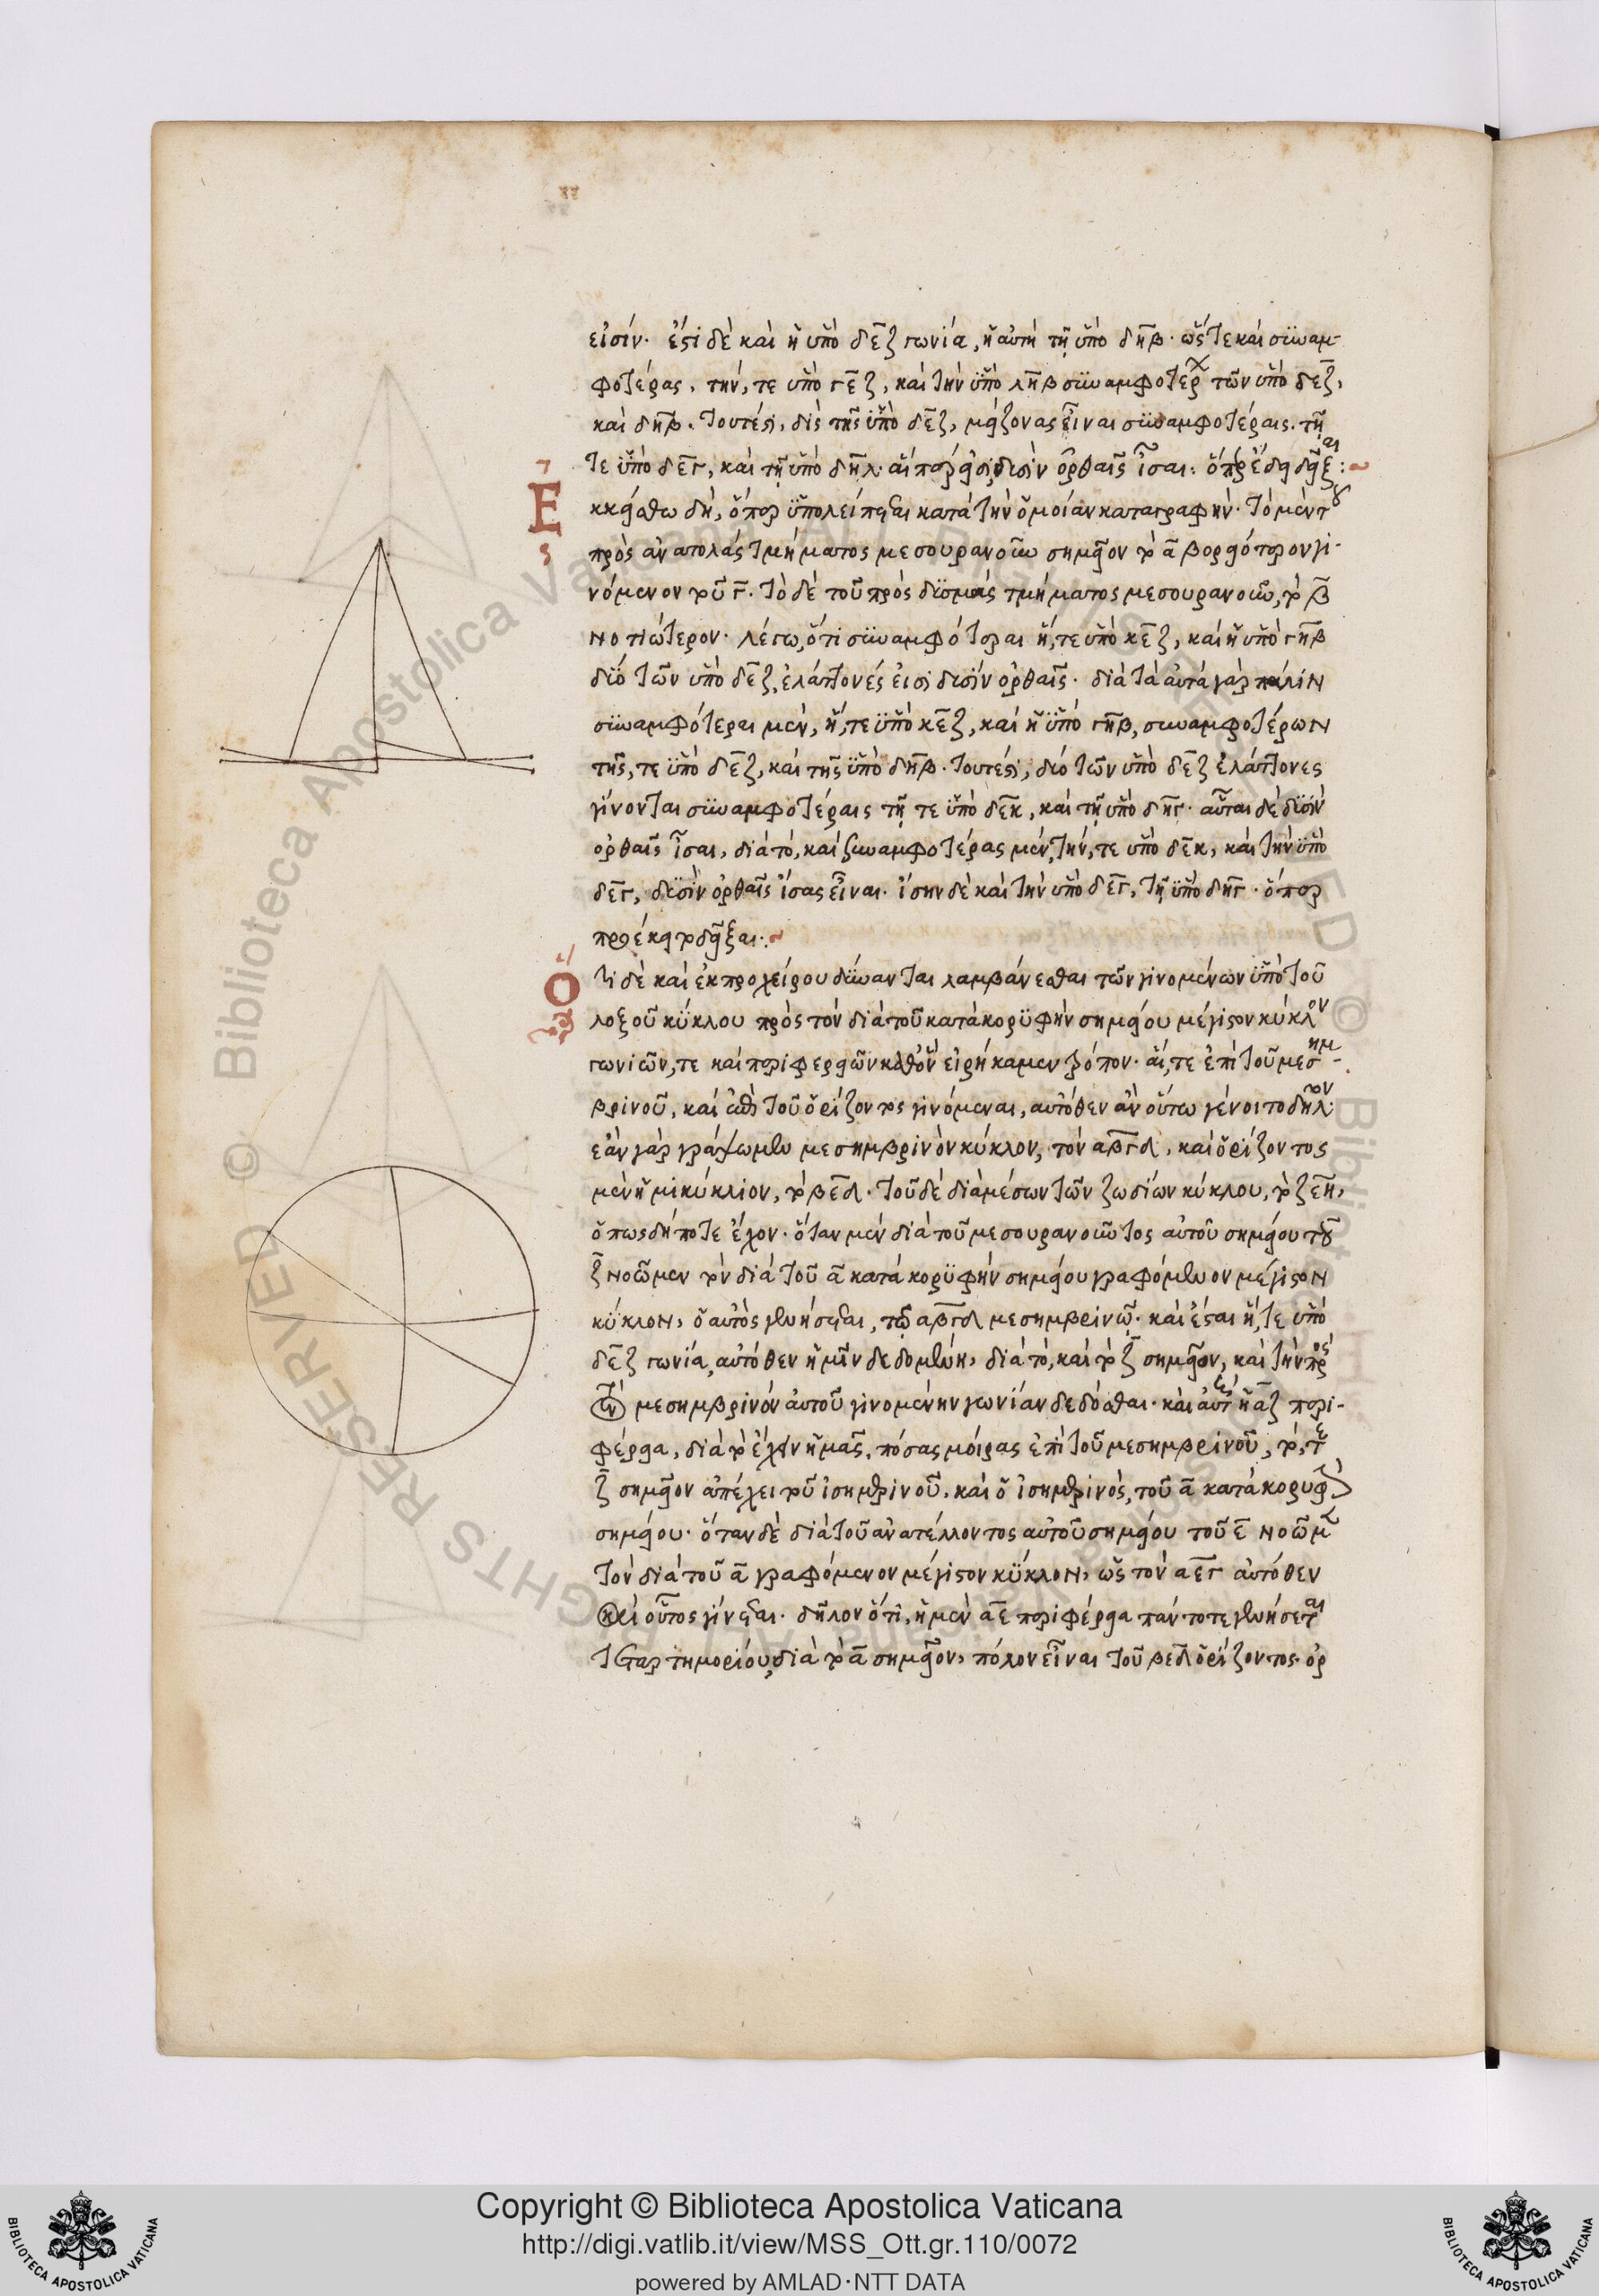 εἰσίν. ἔστι δὲ καὶ ἡ ὑπὸ δεζ γωνία, ἡ αὐτὴ τῇ ὑπὸ δηβ. ὥστε καὶ συναμ-
φοτέρας, τήν, τε ὑπὸ γεζ, καὶ τὴν ὑπὸ ληβ συναμφοτέρων τῶν ὑπὸ δεζ,
καὶ δηβ. τουτέστι, δὶς τῆς ὑπὸ δεζ, μείζονας εἶναι συναμφοτέραις. τῇ
τε ὑπὸ δεγ, καὶ τῇ ὑπὸ δηλ. αἵπερ εἰσὶ, δυσὶν ὀρθαῖς ἶσαι: ὅπερ ἔδει δεῖξαι:~
Ε κκείσθω δή, ὅπερ ὑπολείπεται κατὰ τὴν ὁμοίαν καταγραφήν. τὸ μὲν τοῦ
πρὸς ἀνατολὰς τμήματος μεσουρανοῦν σημεῖον τὸ α βορειότερον γι-
νόμενον τοῦ γ. τὸ δὲ τοῦ πρὸς δυσμὰς τμήματος μεσουρανοῦν, τὸ β
νοτιώτερον. λέγω, ὅτι συναμφότεραι ἥ, τε ὑπὸ κεζ, καὶ ἡ ὑπὸ γηβ
δύο τῶν ὑπὸ δεζ, ἐλάττονές εἰσι δυσὶν ὀρθαῖς. διὰ τὰ αὐτὰ γὰρ πάλιν
συναμφότεραι μὲν, ἥ, τε ὑπὸ κεζ, καὶ ἡ ὑπὸ γηβ, συναμφοτέρων
τῆς, τε ὑπὸ δεζ, καὶ τῆς ὑπὸ δηβ. τουτέστι, δύο τῶν ὑπὸ δεζ ἐλάττονες
γίνονται συναμφοτέραις τῇ τε ὑπὸ δεκ, καὶ τῇ ὑπὸ δηγ. αὗται δὲ δυσὶν
ὀρθαῖς ἶσαι, διὰ τὸ, καὶ συναμφοτέρας μὲν, τήν, τε ὑπὸ δεκ, καὶ τὴν ὑπὸ
δεγ, δυσὶν ὀρθαῖς ἴσας εἶναι. ἴσην δὲ καὶ τὴν ὑπὸ δεγ, τῇ ὑπὸ δηγ. ὅπερ
προέκειτο δεῖξαι:~
Ο τι δὲ καὶ ἐκ προχείρου δύνανται λαμβάνεσθαι τῶν γινομένων ὑπὸ τοῦ
λοξοῦ κύκλου πρὸς τὸν διὰ τοῦ κατὰ κορυφὴν σημείου μέγιστον κύκλον
γωνιῶν, τε καὶ περιφερειῶν καθ' ὃν εἰρήκαμεν τρόπον. αἵ, τε ἐπὶ τοῦ μεσημ-
βρινοῦ, καὶ ἐπὶ τοῦ ὁρίζοντος γινόμεναι, αὐτόθεν ἂν οὕτω γένοιτο δῆλον.
ἐὰν γὰρ γράψωμεν μεσημβρινὸν κύκλον, τὸν αβγδ, καὶ ὁρίζοντος
μὲν ἡμικύκλιον, τὸ βεδ. τοῦ δὲ διὰ μέσων τῶν ζωδίων κύκλου, τὸ ζεη,
ὁπωσδήποτε ἔχον. ὅταν μὲν διὰ τοῦ μεσουρανοῦντος αὐτοῦ σημείου τοῦ
ζ νοῶμεν τὸν διὰ τοῦ α κατὰ κορυφὴν σημείου γραφόμενον μέγιστον
κύκλον, ὁ αὐτὸς γενήσεται, τῷ αβγδ μεσημβρινῷ. καὶ ἔσται ἥ, τε ὑπὸ
δεζ γωνία, αὐτόθεν ἡμῖν δεδομένη, διὰ τὸ, καὶ τὸ ζ σημεῖον, καὶ τὴν πρὸς
τὸν μεσημβρινὸν αὐτοῦ γινομένην γωνίαν δεδόσθαι. καὶ αὐτὴ ἡ αζ περι-
φέρεια, διὰ τὸ ἔχειν ἡμᾶς, πόσας μοίρας ἐπὶ τοῦ μεσημβρινοῦ, τό, τε
ζ σημεῖον ἀπέχει τοῦ ἰσημερινοῦ. καὶ ὁ ἰσημερινός, τοῦ α κατὰ κορυφὴν
σημείου. ὅταν δὲ διὰ τοῦ ἀνατέλλοντος αὐτοῦ σημείου τοῦ ε νοῶμεν
τὸν διὰ τοῦ α γραφόμενον μέγιστον κύκλον, ὡς τὸν αεγ αὐτόθεν
καὶ οὗτος γίνεται. δῆλον ὅτι, ἡ μὲν αε περιφέρεια πάντοτε γενήσεται
τεταρτημορίου, διὰ τὸ α σημεῖον, πόλον εἶναι τοῦ βεδ ὁρίζοντος. ὀρ
Copyright © Biblioteca Apostolica Vaticana
http://digi.vatlib.it/view/MSS_Ott.gr.110/0072
powered by AMLAD·NTT DATA
BIBLIOTECA APOSTOLICA VATICANA
BIBLIOTECA APOSTOLICA VATICANA